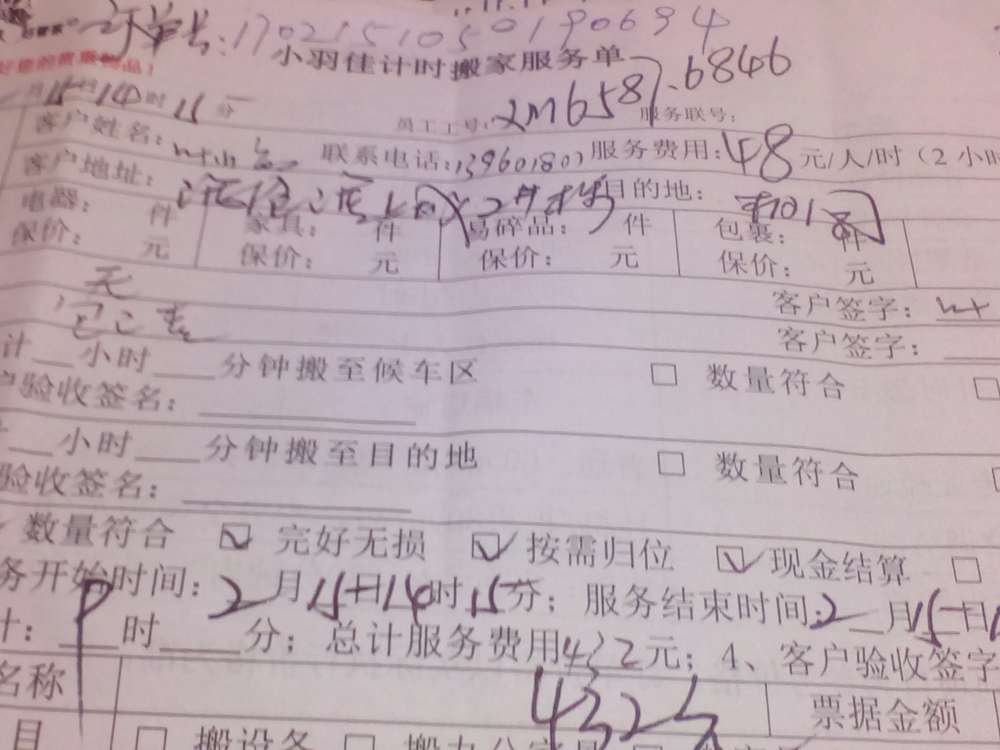 17021510501906 94
小羽佳计时搬家服务单
月15日14时15分 员工工号: 2M6587.6846 服务联号:
客户姓名: 联系电话:1396018 服务费用:48元/人/时(2小时
客户地址: 目的地:
电器: 件 家具: 件 易碎品: 件 包裹: 件
保价: 元 保价: 元 保价: 元 保价: 元
无 客户签字:
客户签字:
计__小时____分钟搬至候车区 □ 数量符合 □
户验收签名:
__小时____分钟搬至目的地 □ 数量符合
验收签名:
数量符合 ☑ 完好无损 ☑ 按需归位 ☑ 现金结算 □
务开始时间:2月15日14时15分;服务结束时间:2月15日1
计:__时____分;总计服务费用432元;4、客户验收签字
名称 432 票据金额
目 □ 搬设备 □ 搬办公家具